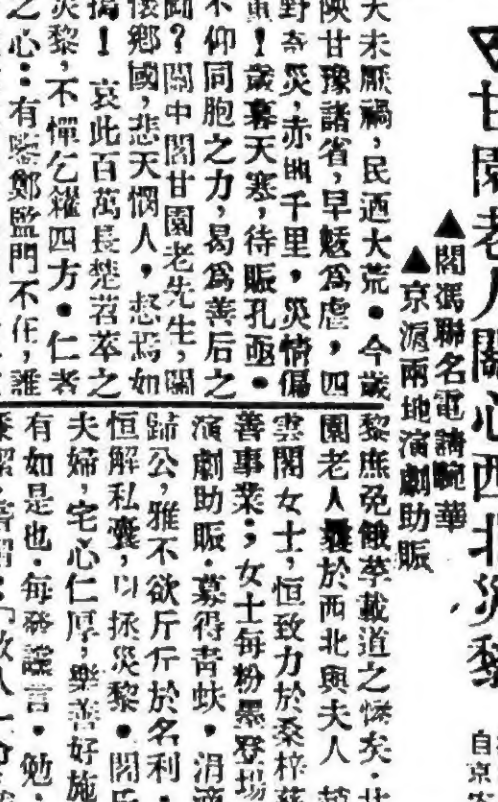 ▽甘園老人關心西北災黎
▲閻馮聯名電請畹華
▲京滬兩地演劇助賑
天未厭禍，民迺大荒・今歲
陝甘豫諸省，旱魃爲虐，四
野奇災，赤地千里，災情偏
重！歲暮天寒，待賑孔亟・
不仰同胞之力，曷爲善后之
圖？關中閻甘園老先生，關
懷鄉國，悲天憫人，惄焉如
搗！哀此百萬長楚苕苹之
災黎，不憚乞糴四方・仁者
之心：有鑒鄭監門不作，誰
黎庶免餓莩載道之慘矣・甘
園老人曩於西北與夫人
雲閣女士，恒致力於桑梓慈
善事業；女士每粉墨登場
演劇助賑・募得青蚨，涓滴
歸公，雅不欲斤斤於名利，
恒解私囊，以拯災黎・閻氏
夫婦，宅心仁厚，樂善好施
有如是也・每發讜言・勉
自京